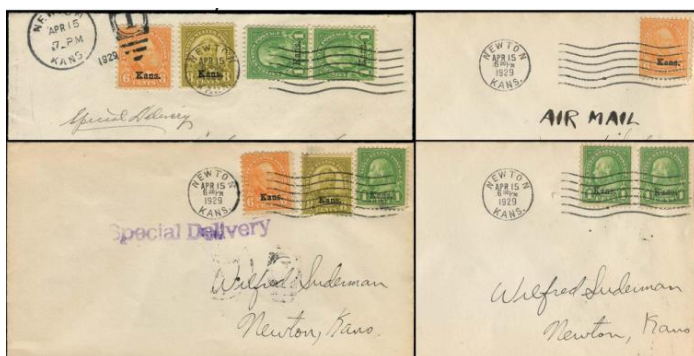 NEWTON
APR 15
7-PM
KANS.
1929
1
6 Kans.
Kans. 8
Kans. 1
Kans. 1
NEWTON
APR 15
KANS.
Special Delivery
NEWTON
APR 15
6:30 PM
1929
KANS.
Kans.
AIR MAIL
NEWTON
APR 15
6:30 PM
1929
KANS.
6 Kans.
Kans.
Kans. 1
Special Delivery
Wilfred Suderman
Newton, Kans.
NEWTON
APR 15
6:30 PM
1929
KANS.
Kans.
Kans.
Wilfred Suderman
Newton, Kans